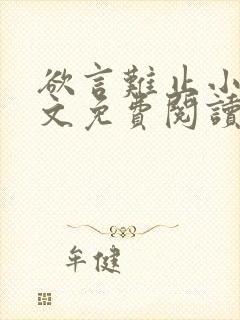 欲言難止小
文免費閱讀
牟健